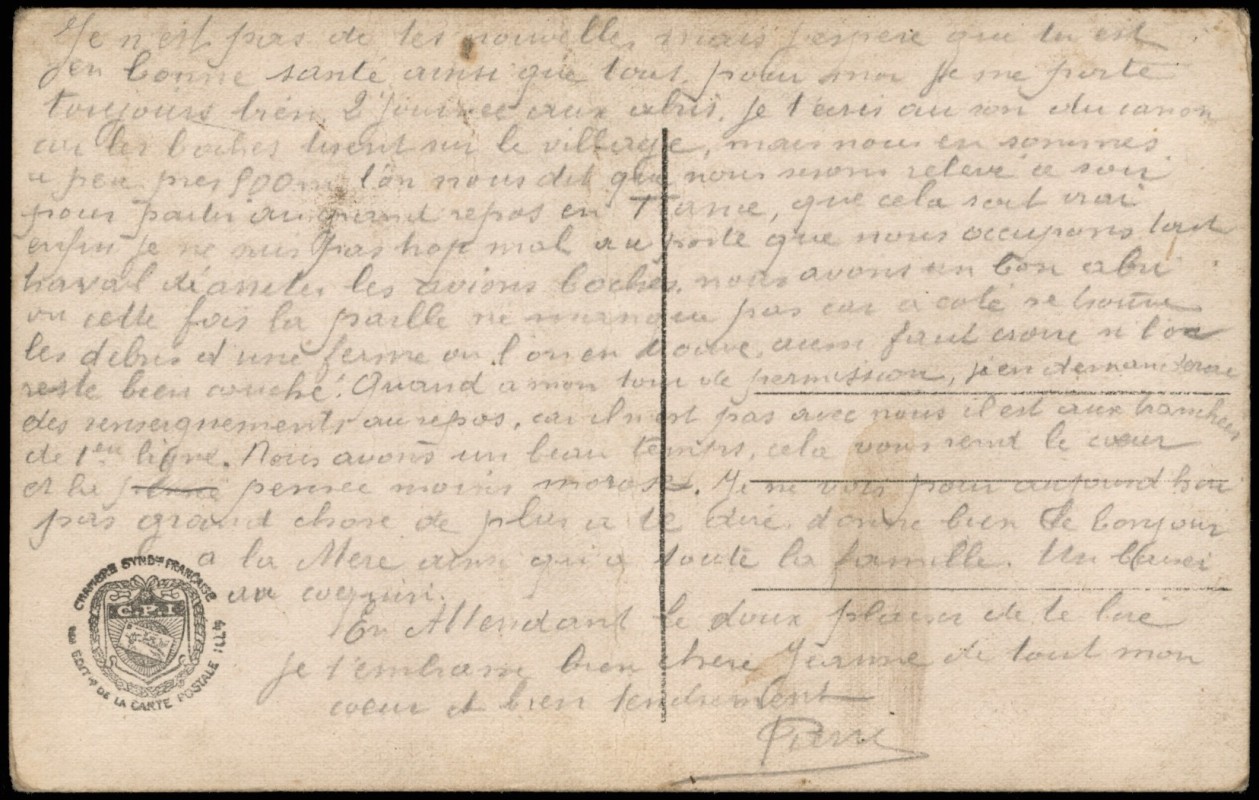 Je n'est pas de tes nouvelle, mais j'espere que tu est
en bonne santé ainsi que tout, pour moi je me porte
toujours bien, 2e Journée aux abris, je t'ecris au son du canon
car les boches tirent sur le village, mais nous en sommes
a peu pres 900m l'on nous dit que nous serons relevé ce soir
pour partir au grand repos en France, que cela soit vrai
enfin je ne suis pas trop mal au poste que nous occupons tout
travail d'arreter les avions boches, nous avons un bon abri
ou cette fois la paille ne manque pas car a coté se trouve
les debris d'une ferme ou l'on en trouve, aussi faut croire si l'on
reste bien couché! Quand a mon tour de permission, j'en demanderai
des renseignements au repos, car il n'est pas avec nous il est aux tranchées
de 1ere ligne. Nous avons un beau temps, cela vous rend le cœur
et la pensée moins morose. Je ne vois pour aujourd'hui
pas grand chose de plus a te dire, donne bien le bonjour
a la Mere ainsi qu'a toute la famille. Un baiser
au
En Attendant le doux plaisir de te lire
je t'embrasse bien chere Jeanne de tout mon
coeur et bien tendrement
Pierre
CHAMBRE SYNDle FRANÇAISE
C.P.I.
DE LA CARTE POSTALE ILLée